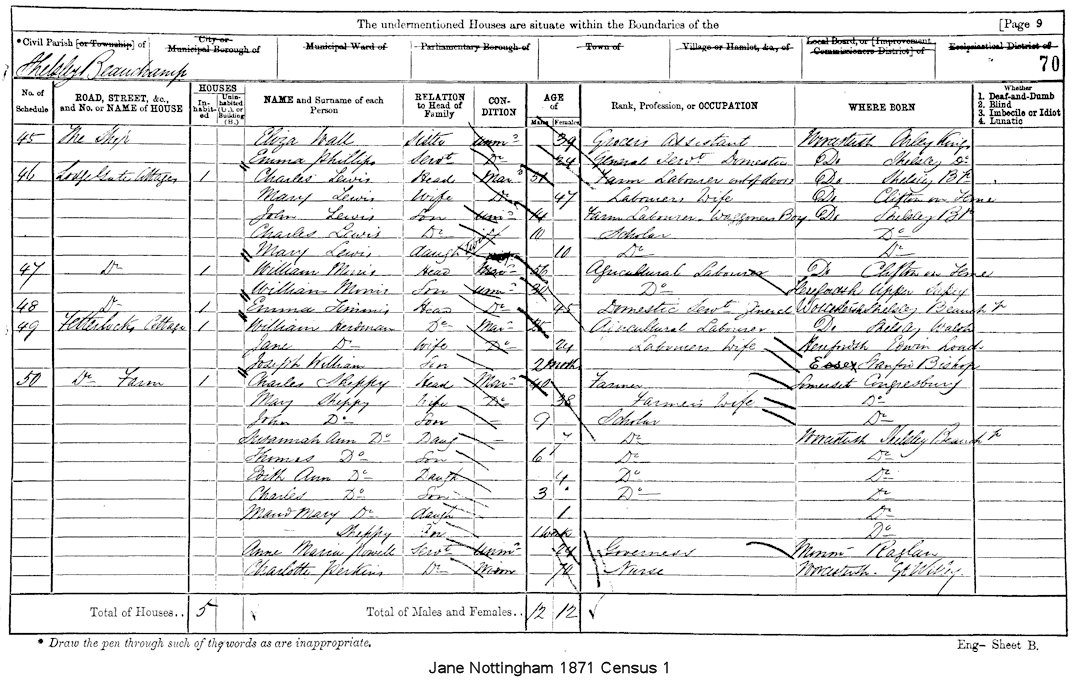 The undermentioned Houses are situate within the Boundaries of the [Page 9
*Civil Parish [or Township] of City or Municipal Borough of Municipal Ward of Parliamentary Borough of Town of Village or Hamlet, &c., of Local Board, or [Improvement Commissioners District] of Ecclesiastical District of
Shelsley Beauchamp 70
No. of Schedule ROAD, STREET, &c., and No. or NAME of HOUSE HOUSES Inhabited Uninhabited (U.), or Building (B.) NAME and Surname of each Person RELATION to Head of Family CONDITION AGE of Males Females Rank, Profession, or OCCUPATION WHERE BORN Whether 1. Deaf-and-Dumb 2. Blind 3. Imbecile or Idiot 4. Lunatic
45 The Ship Eliza Wall Sister Unmd 39 Grocers Assistant
Emma Phillips Servt Do 24 General Servt Domestic Do Shelsley Do
46 Cottages 1 Charles Lewis Head Mard Farm Labourer out of doors Do Shelsley
Mary Lewis Wife Do 47 Labourers Wife Do Clifton on Teme
John Lewis Son Unmd Farm Labourer Waggoners Boy Do Shelsley
Charles Lewis Do 10 Scholar Do
Mary Lewis daugh 10 Do Do
47 Do 1 William Head Mard Agricultural Labourer Do Clifton on Teme
William Son Unmd Do Herefordsh Upper Sapey
48 Do 1 Emma Head Do 45 Domestic Servt General Shelsley Beauch
49 Cottage 1 William Herdman Do Mard Agricultural Labourer Do Shelsley Walsh
Jane Do Wife Do 24 Labourers Wife Edwin Loach
Joseph William Son 2 months Bishop
50 Do Farm 1 Charles Sheppy Head Mard 40 Farmer Somerset Congresbury
Mary Sheppy Wife Do 38 Farmers Wife Do
John Do Son 9 Scholar Do
Susannah Ann Do Daug 7 Do Worcestsh Shelsley Beauch
Thomas Do Son 6 Do Do
Edith Ann Do Daugh 4 Do Do
Charles Do Son 3 Do Do
Maud Mary Do daugh 1 Do
— Sheppy Son 1 week Do
Anne Maria Powell Servt Unmd 24 Governess Monm Raglan
Charlotte Perkins Do 70 Nurse Worcestsh Gt Witley
Total of Houses.. 5 Total of Males and Females.. 12 12
* Draw the pen through such of the words as are inappropriate. Eng- Sheet B.
Jane Nottingham 1871 Census 1